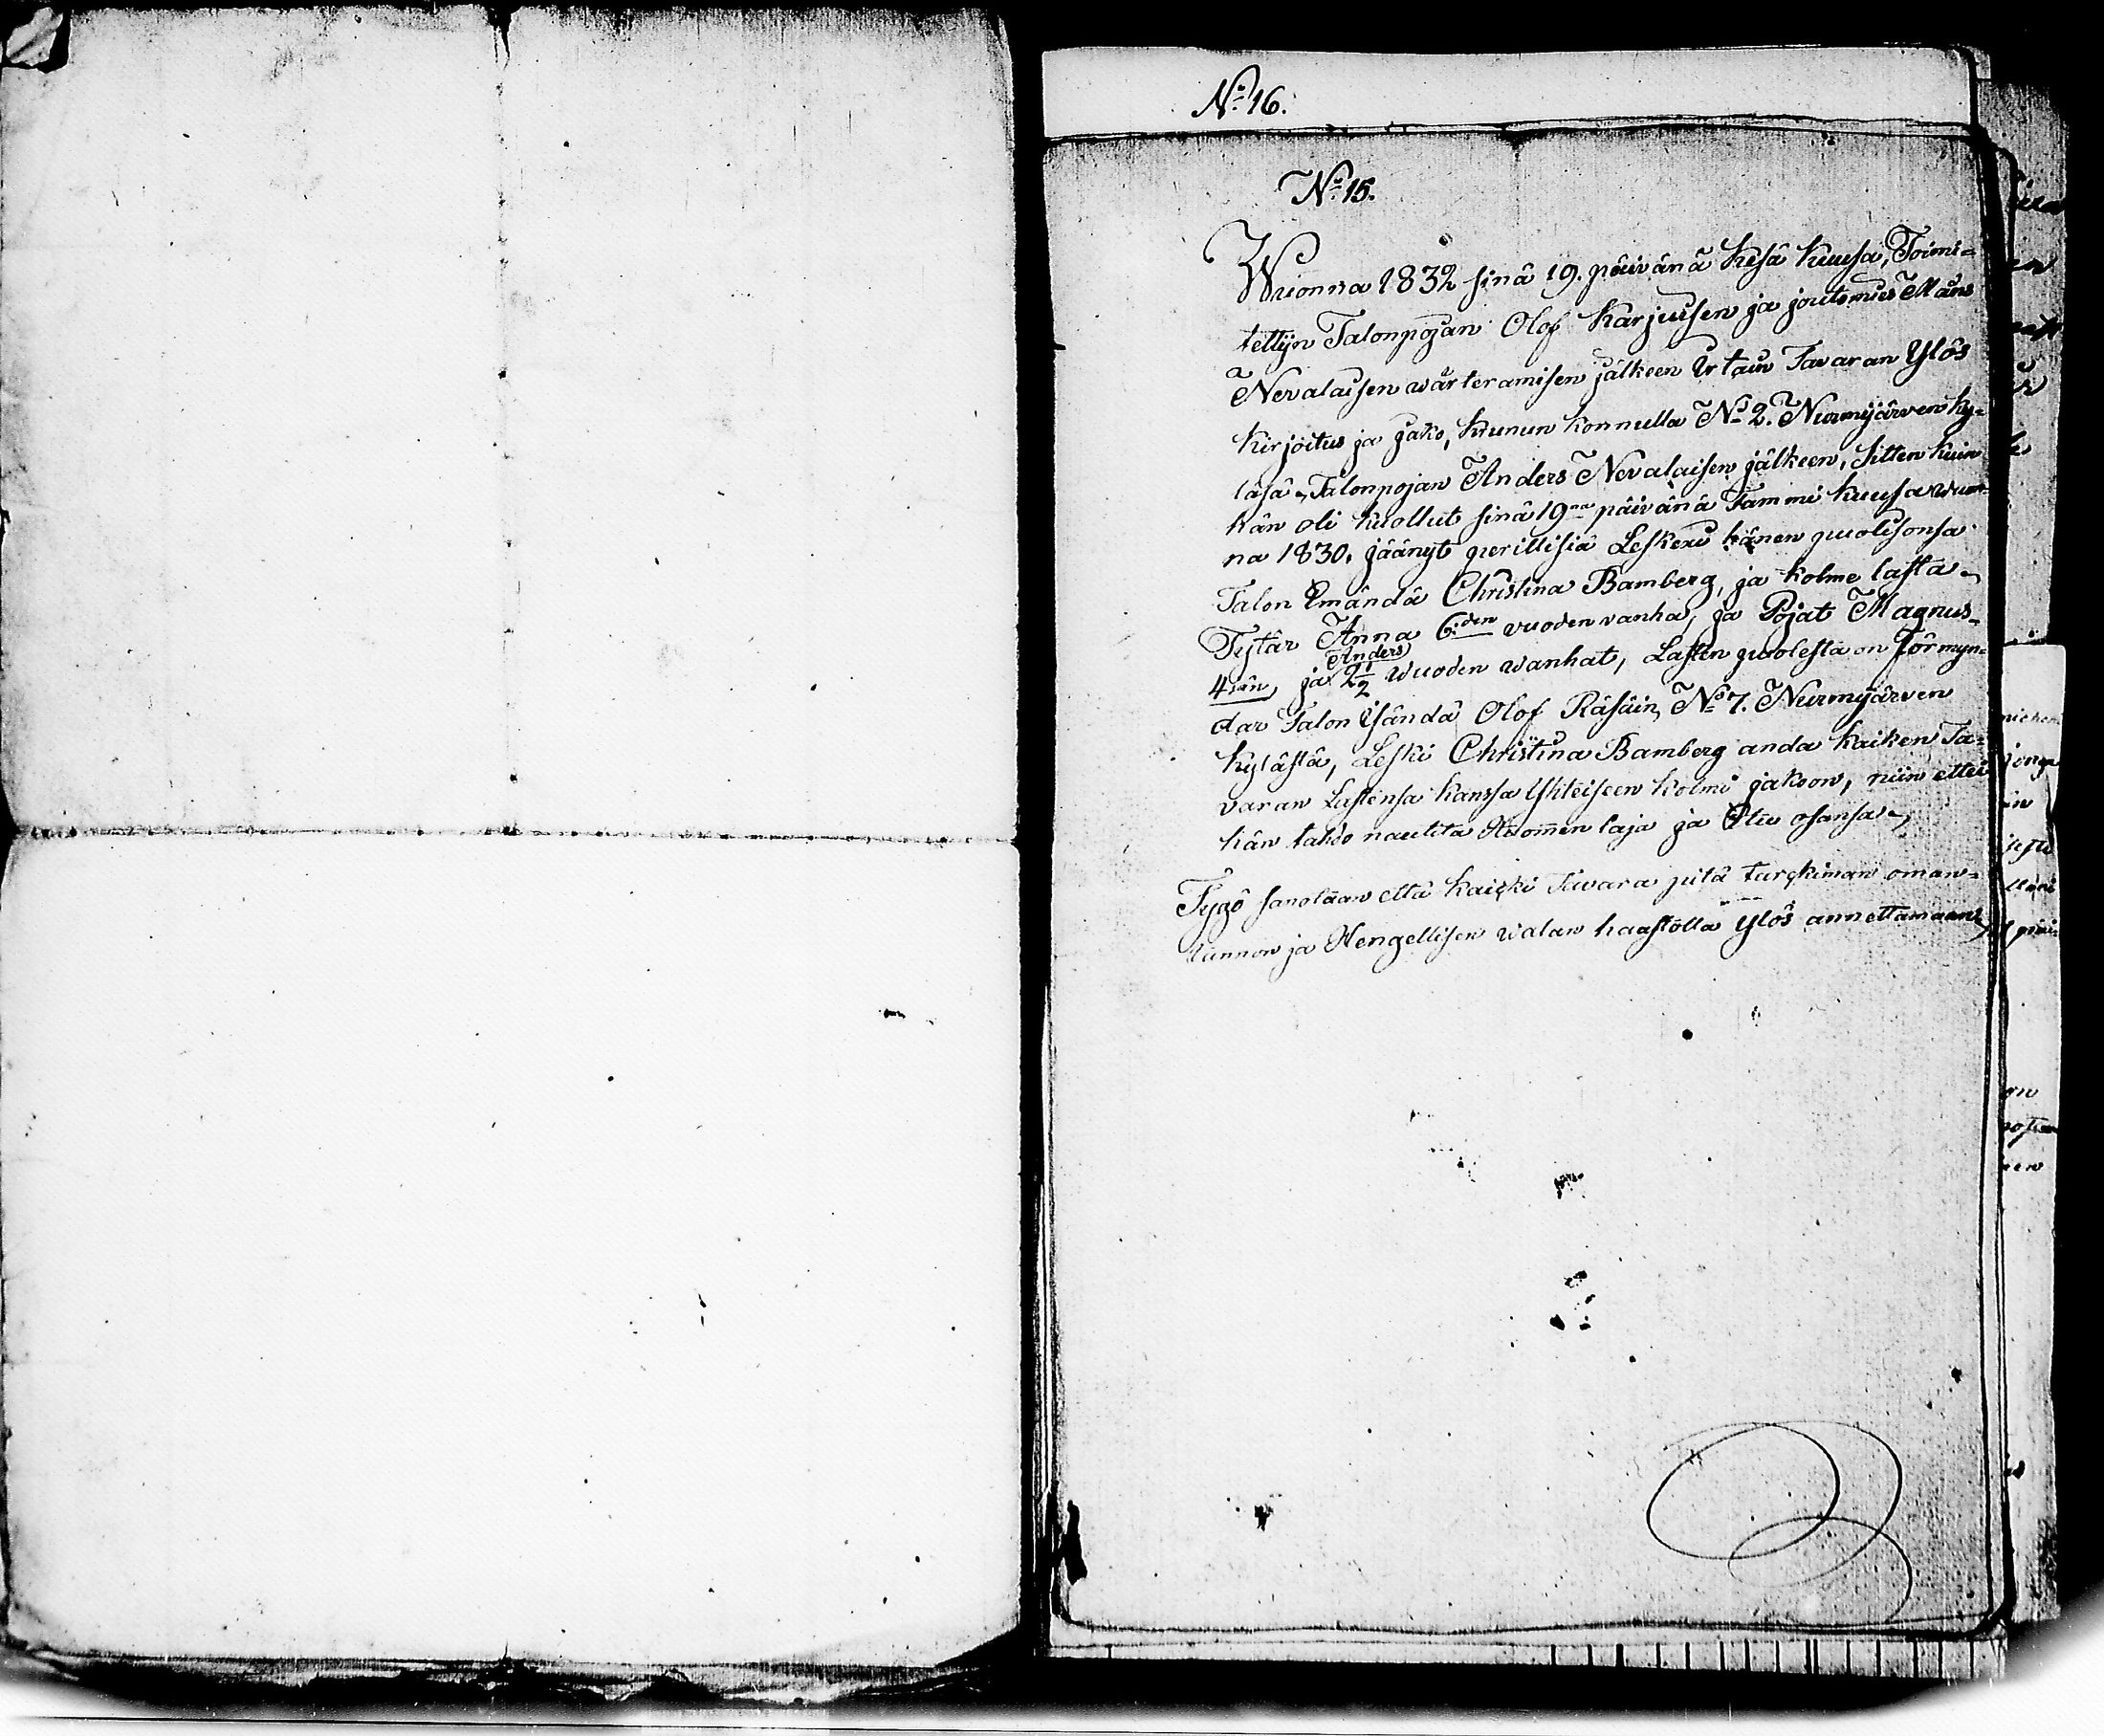 No 16.
No 15.
Wuonna 1832 sinä 19. päivänä Kesä kuusa, Toimi=
tettijn Talonpojan Olof Karjusen ja joutomies Måns
Nevalaisen wärteramisen jälkeen Irtain Tavaran Ylös
kirjoitus ja Jako, krunun konnulla No 2. Nurmijärven ky=
läsä, Talonpojan Anders Nevalaisen jälkeen, sitten kuin
hän oli kuollut sinä 19na päivänä Tammi kuusa wuon
na 1830. jäänyt perillisiä Lesken hänen puolisonsa
Talon Emändä Christina Bamberg, ja kolme lasta
Tytär Anna 6:den vuoden vanha, ja Pojat Magnus
4än, ja Anders 2 1/2 wuoden wanhat, Lasten puolesta on Förmyn=
dar Talon Isändä Olof Räsäin, No 7. Nurmijärven
kylästä, Leski Christina Bamberg anda kaiken Ta=
varan Lastensa kanssa Yhteiseen kolmi jakoon, niin ettei
hän tahdo nautita Huomen laja ja Etu osansa
Tygö sanotaan että kaicki Tavara pitä tarckiman oman=
tunnon ja Hengellisen walan haastolla Ylös annettamaan